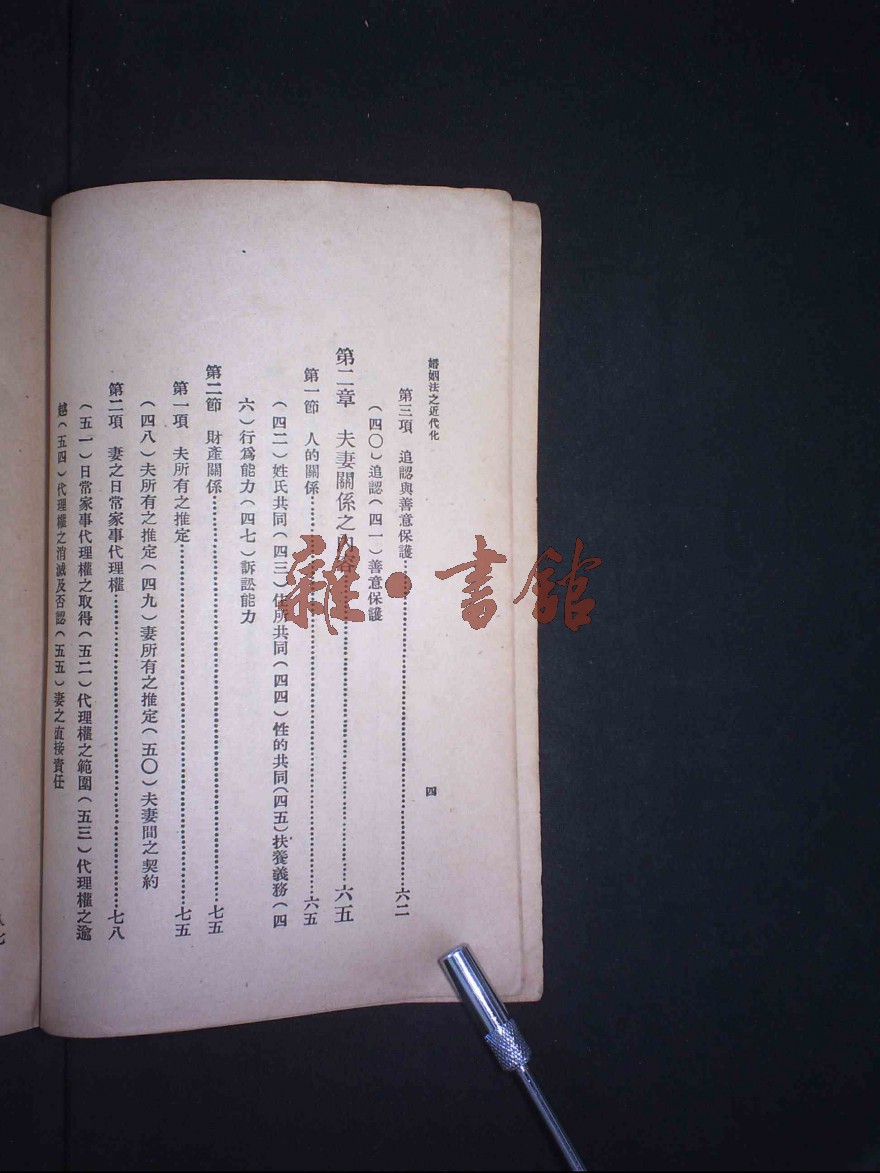 婚姻法之近代化
四
第三項　追認與善意保護……六二
（四〇）追認（四一）善意保護
第二章　夫妻關係之內容……六五
第一節　人的關係……六五
（四二）姓氏共同（四三）住所共同（四四）性的共同（四五）扶養義務（四
六）行爲能力（四七）訴訟能力
第二節　財產關係……七五
第一項　夫所有之推定……七五
（四八）夫所有之推定（四九）妻所有之推定（五〇）夫妻間之契約
第二項　妻之日常家事代理權……七八
（五一）日常家事代理權之取得（五二）代理權之範圍（五三）代理權之逾
越（五四）代理權之消滅及否認（五五）妻之直接責任
雜·書館